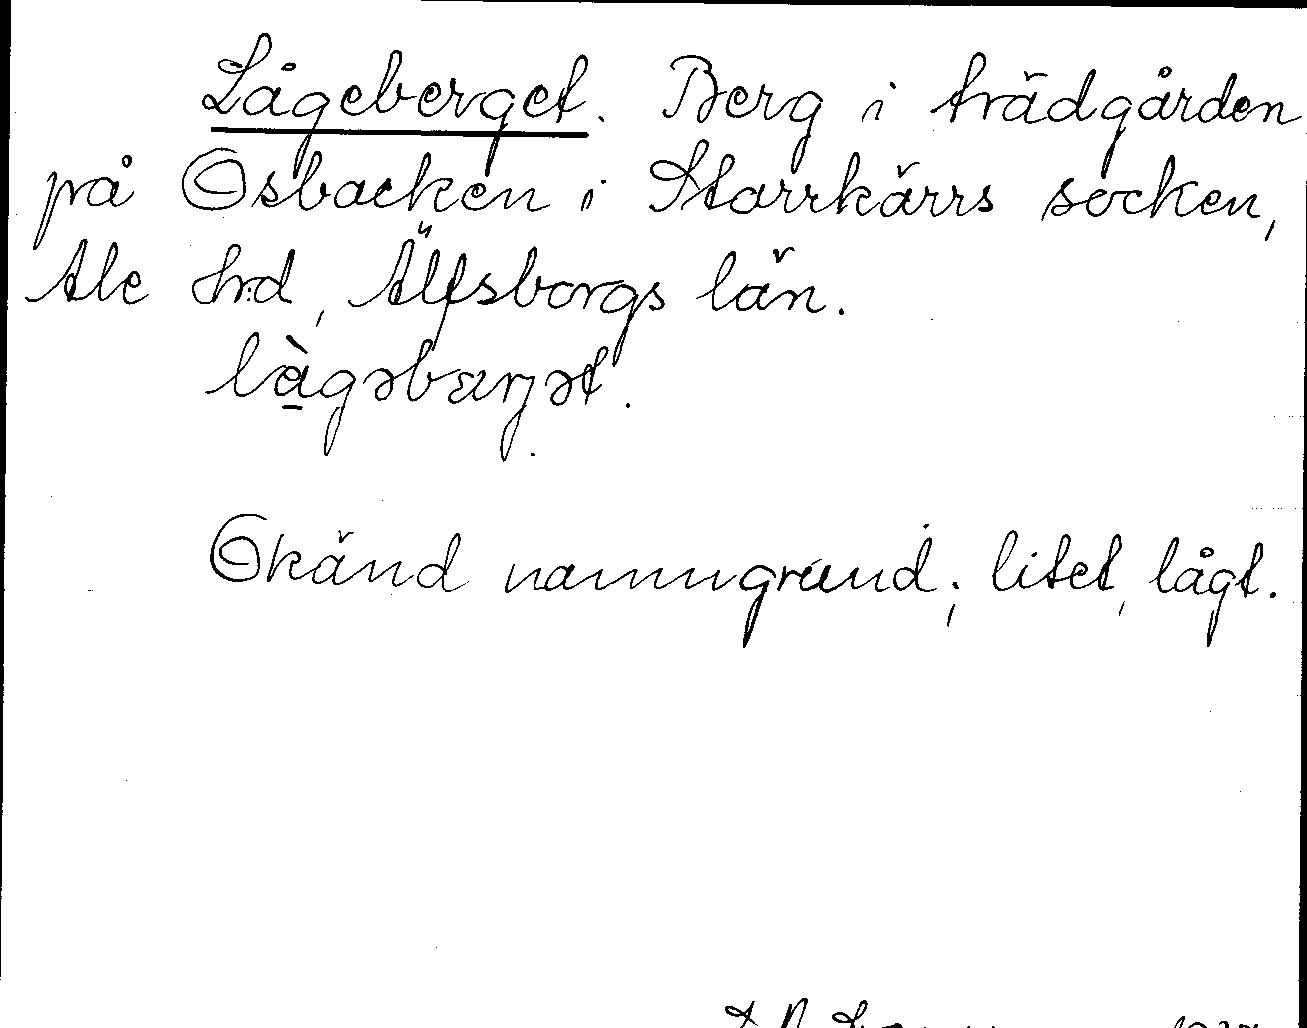 Lågeberget. Berg i trädgården
på Osbacken i Starrkärrs socken,
Ale hrd, Älfsborgs län.
lågəbærjət.
Okänd namngrund; litet, lågt.